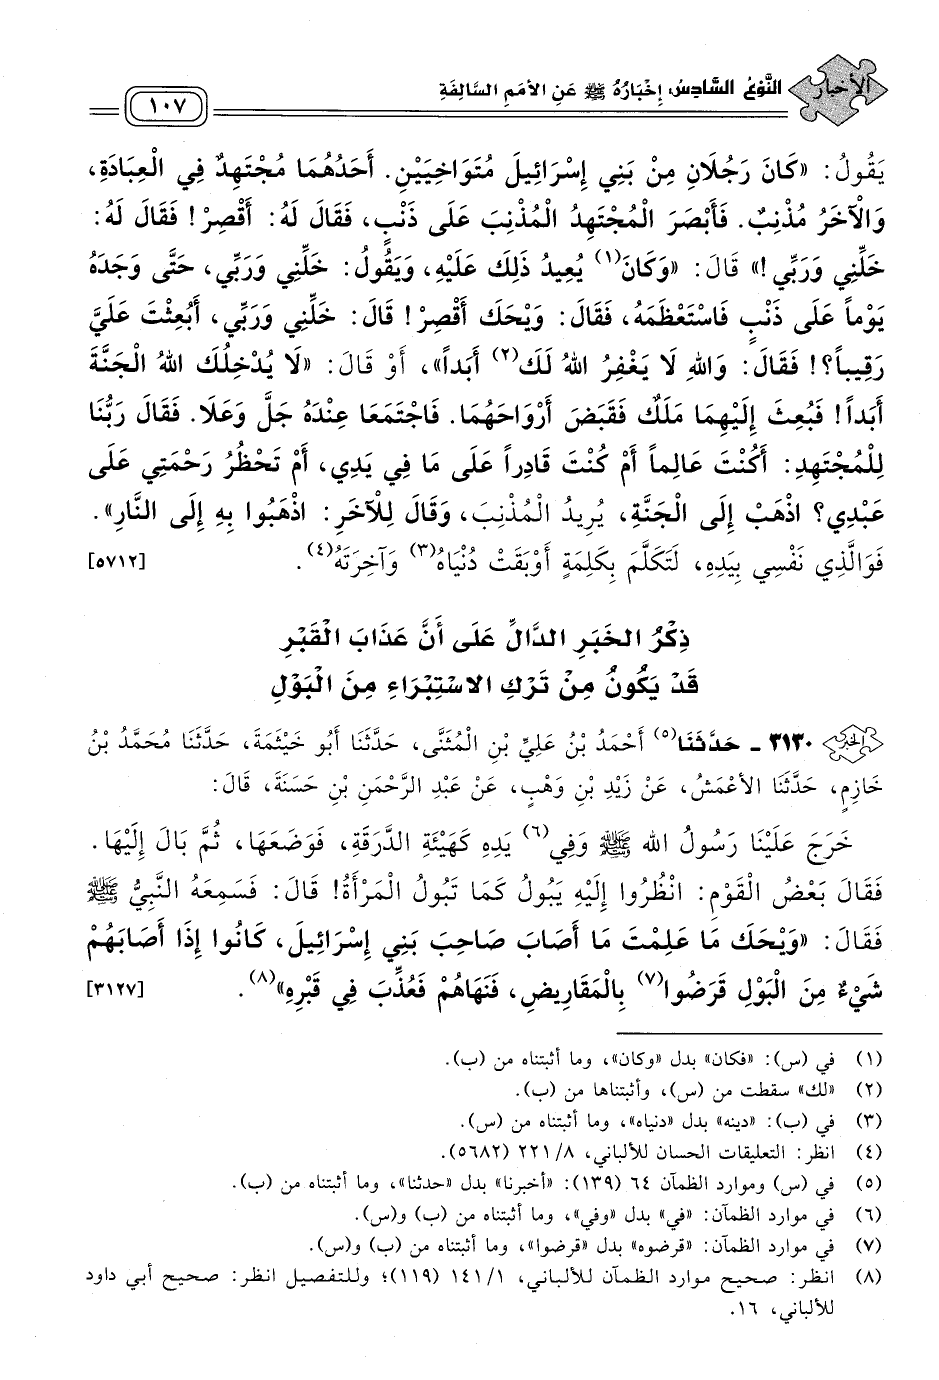 الأخبار
النَّوْعُ السَّادِسُ، إِخْبَارُهُ ﷺ عَنِ الأُمَمِ السَّالِفَةِ
١٠٧
يَقُولُ: «كَانَ رَجُلَانِ مِنْ بَنِي إِسْرَائِيلَ مُتَوَاخِيَيْنِ. أَحَدُهُمَا مُجْتَهِدٌ فِي الْعِبَادَةِ،
وَالْآخَرُ مُذْنِبٌ. فَأَبْصَرَ الْمُجْتَهِدُ الْمُذْنِبَ عَلَى ذَنْبٍ، فَقَالَ لَهُ: أَقْصِرْ! فَقَالَ لَهُ:
خَلِّنِي وَرَبِّي!» قَالَ: «وَكَانَ(١) يُعِيدُ ذَلِكَ عَلَيْهِ، وَيَقُولُ: خَلِّنِي وَرَبِّي، حَتَّى وَجَدَهُ
يَوْماً عَلَى ذَنْبٍ فَاسْتَعْظَمَهُ، فَقَالَ: وَيْحَكَ أَقْصِرْ! قَالَ: خَلِّنِي وَرَبِّي، أَبُعِثْتَ عَلَيَّ
رَقِيباً؟! فَقَالَ: وَاللهِ لَا يَغْفِرُ اللهُ لَكَ(٢) أَبَداً»، أَوْ قَالَ: «لَا يُدْخِلُكَ اللهُ الْجَنَّةَ
أَبَداً! فَبُعِثَ إِلَيْهِمَا مَلَكٌ فَقَبَضَ أَرْوَاحَهُمَا. فَاجْتَمَعَا عِنْدَهُ جَلَّ وَعَلَا. فَقَالَ رَبُّنَا
لِلْمُجْتَهِدِ: أَكُنْتَ عَالِماً أَمْ كُنْتَ قَادِراً عَلَى مَا فِي يَدِي، أَمْ تَحْظُرُ رَحْمَتِي عَلَى
عَبْدِي؟ اذْهَبْ إِلَى الْجَنَّةِ، يُرِيدُ الْمُذْنِبَ، وَقَالَ لِلْآخَرِ: اذْهَبُوا بِهِ إِلَى النَّارِ».
فَوَالَّذِي نَفْسِي بِيَدِهِ، لَتَكَلَّمَ بِكَلِمَةٍ أَوْبَقَتْ دُنْيَاهُ(٣) وَآخِرَتَهُ(٤). [٥٧١٢]
ذِكْرُ الخَبَرِ الدَّالِّ عَلَى أَنَّ عَذَابَ الْقَبْرِ
قَدْ يَكُونُ مِنْ تَرْكِ الاسْتِبْرَاءِ مِنَ الْبَوْلِ
٣١٣٠ - حَدَّثَنَا(٥) أَحْمَدُ بْنُ عَلِيِّ بْنِ الْمُثَنَّى، حَدَّثَنَا أَبُو خَيْثَمَةَ، حَدَّثَنَا مُحَمَّدُ بْنُ
خَازِمٍ، حَدَّثَنَا الأَعْمَشُ، عَنْ زَيْدِ بْنِ وَهْبٍ، عَنْ عَبْدِ الرَّحْمَنِ بْنِ حَسَنَةَ، قَالَ:
خَرَجَ عَلَيْنَا رَسُولُ اللهِ ﷺ وَفِي(٦) يَدِهِ كَهَيْئَةِ الدَّرَقَةِ، فَوَضَعَهَا، ثُمَّ بَالَ إِلَيْهَا.
فَقَالَ بَعْضُ الْقَوْمِ: انْظُرُوا إِلَيْهِ يَبُولُ كَمَا تَبُولُ الْمَرْأَةُ! قَالَ: فَسَمِعَهُ النَّبِيُّ ﷺ
فَقَالَ: «وَيْحَكَ مَا عَلِمْتَ مَا أَصَابَ صَاحِبَ بَنِي إِسْرَائِيلَ، كَانُوا إِذَا أَصَابَهُمْ
شَيْءٌ مِنَ الْبَوْلِ قَرَضُوا(٧) بِالْمَقَارِيضِ، فَنَهَاهُمْ فَعُذِّبَ فِي قَبْرِهِ»(٨). [٣١٢٧]
(١) في (س): «فكان» بدل «وكان»، وما أثبتناه من (ب).
(٢) «لك» سقطت من (س)، وأثبتناها من (ب).
(٣) في (ب): «دينه» بدل «دنياه»، وما أثبتناه من (س).
(٤) انظر: التعليقات الحسان للألباني، ٨/ ٢٢١ (٥٦٨٢).
(٥) في (س) وموارد الظمآن ٦٤ (١٣٩): «أخبرنا» بدل «حدثنا»، وما أثبتناه من (ب).
(٦) في موارد الظمآن: «في» بدل «وفي»، وما أثبتناه من (ب) و(س).
(٧) في موارد الظمآن: «قرضوه» بدل «قرضوا»، وما أثبتناه من (ب) و(س).
(٨) انظر: صحيح موارد الظمآن للألباني، ١/ ١٤١ (١١٩)؛ وللتفصيل انظر: صحيح أبي داود
للألباني، ١٦.